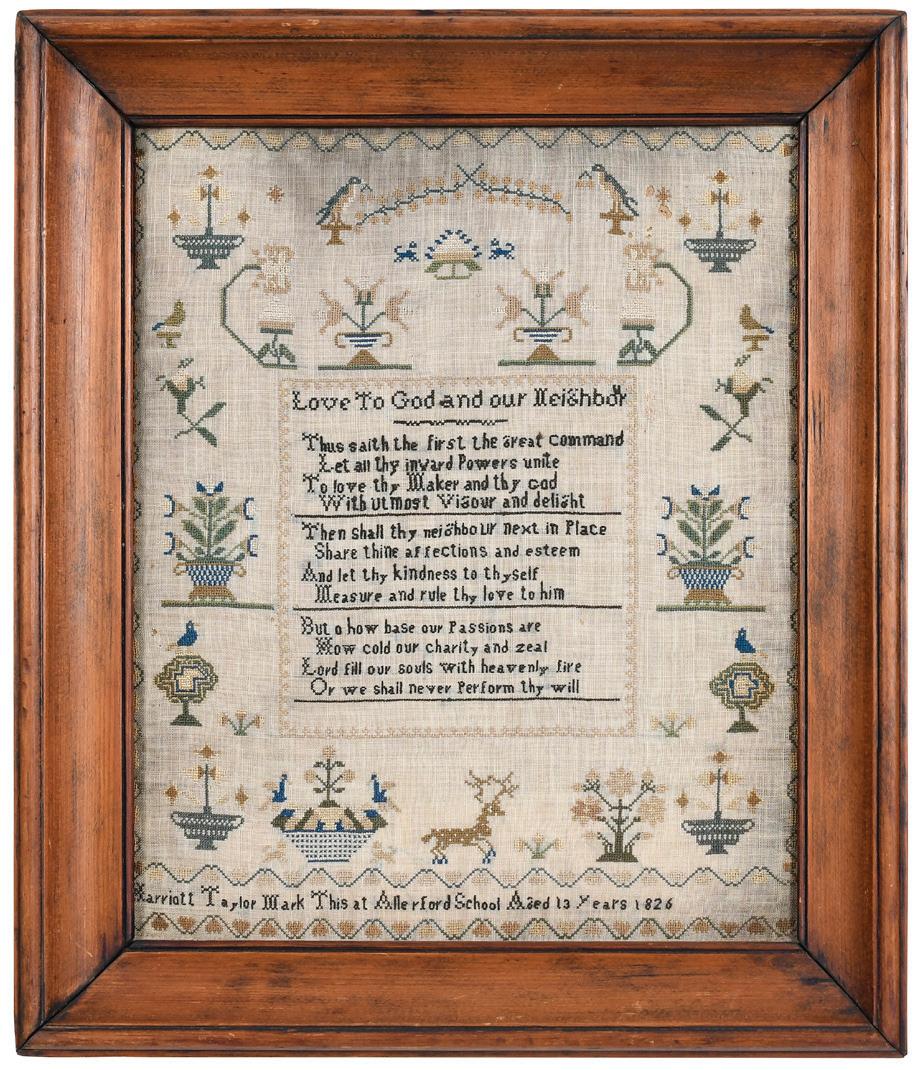 Love To God and our Neighbour
Thus saith the first the great command
Let all thy inward Powers unite
To love thy Maker and thy God
With utmost Vigour and delight
Then shall thy neighbour next in Place
Share thine affections and esteem
And let thy kindness to thyself
Measure and rule thy love to him
But o how base our Passions are
How cold our charity and zeal
Lord fill our souls with heavenly fire
Or we shall never Perform thy will
Harriott Taylor Mark This at Allerford School Aged 13 Years 1826